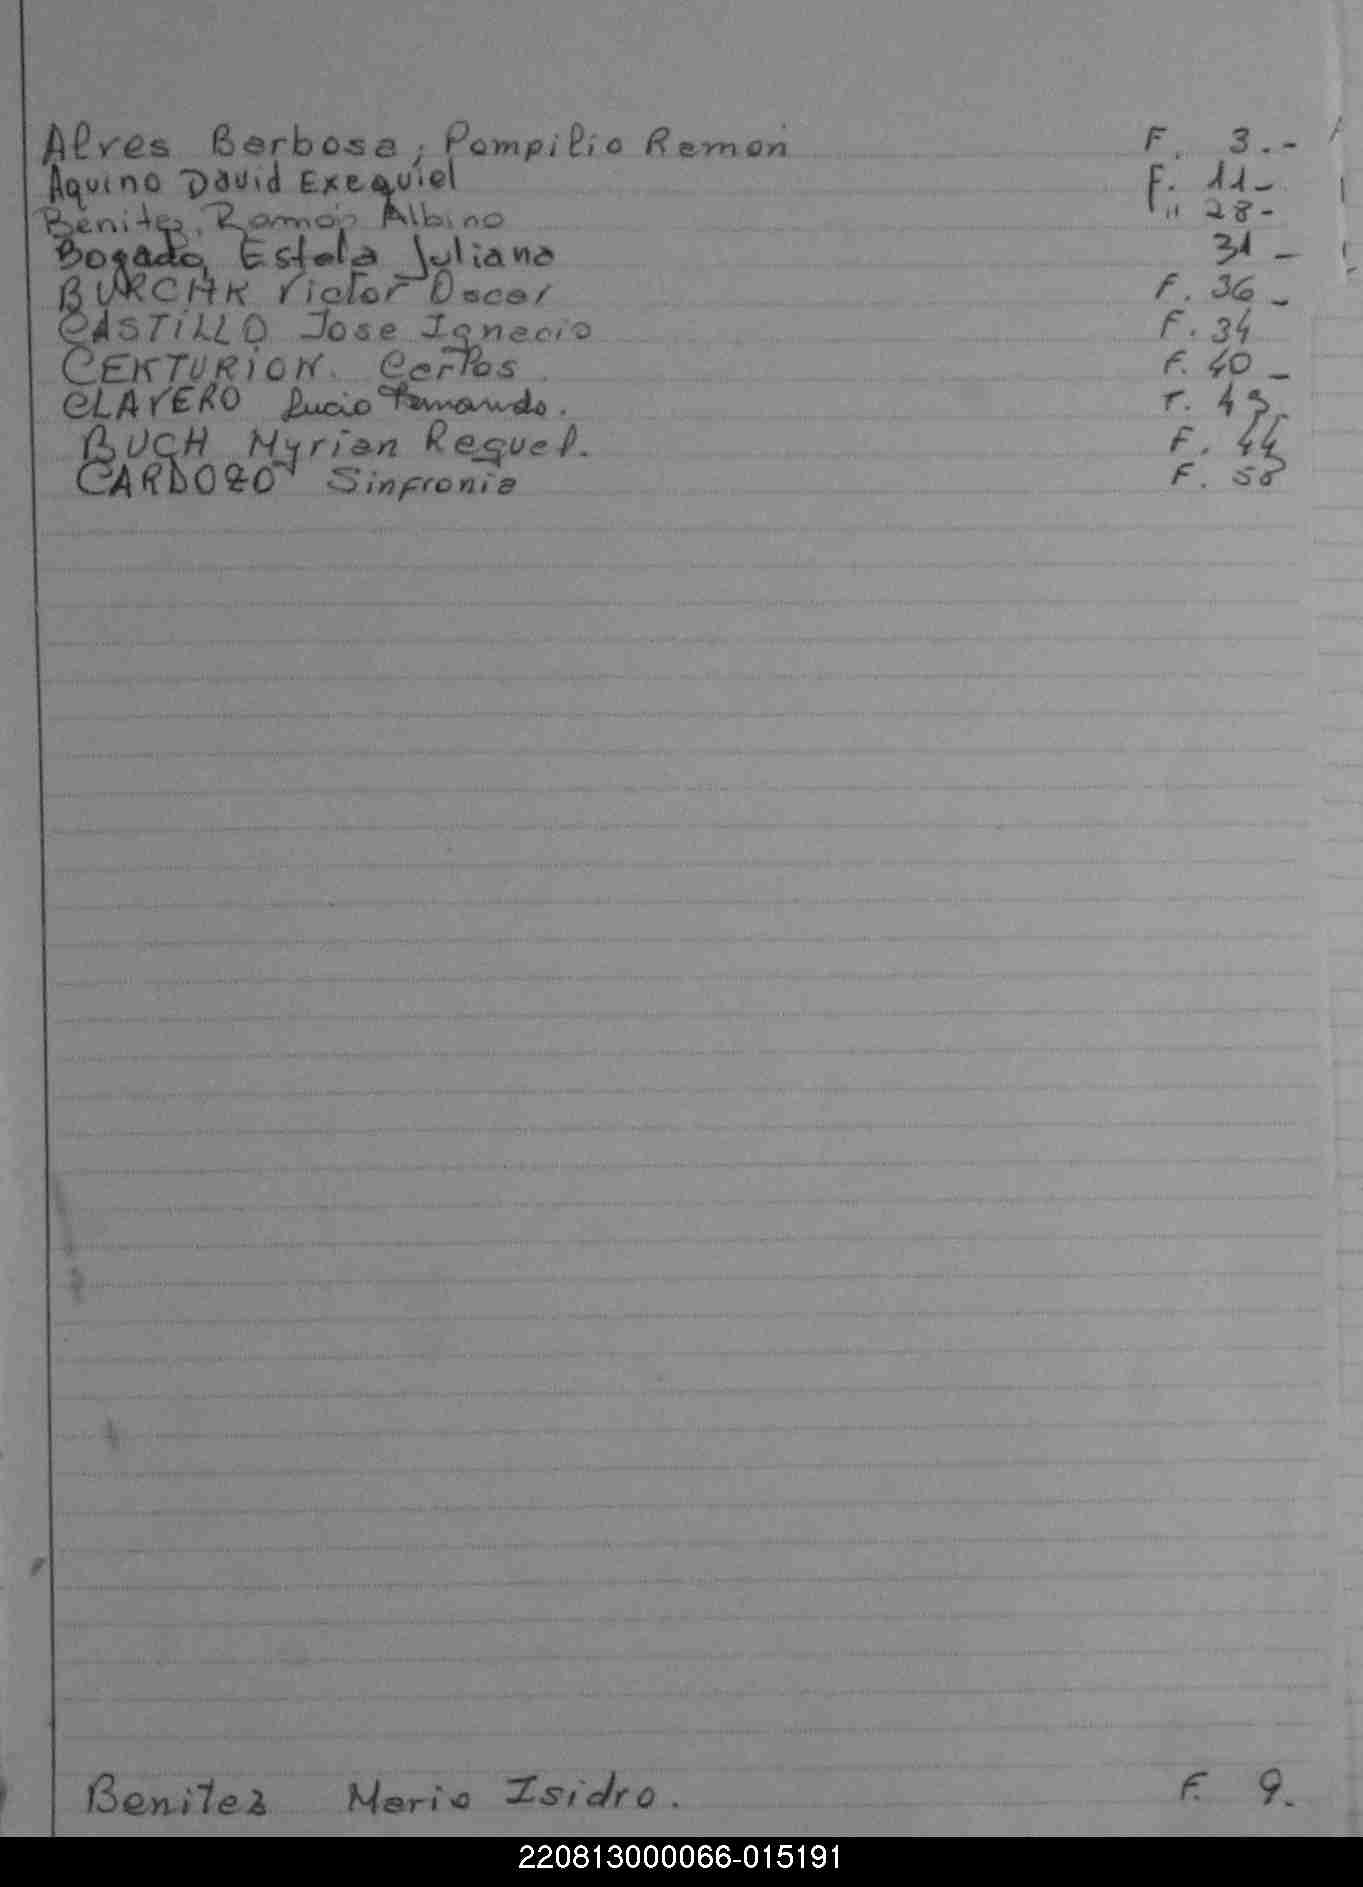 Alves Barbosa, Pompilio Ramon F. 3.-
Aquino David Exequiel F. 11-
Benitez, Ramón Albino " 28-
Bogado, Estela Juliana 31 -
BURCHK Victor Oscar F. 36 -
CASTILLO Jose Ignacio F. 34
CENTURION. Carlos F. 40 -
CLAVERO Lucio Fernando. F. 43.
BUCH Myrian Raquel. F. 44
CARDOZO Sinfronia F. 58
Benitez Mario Isidro. F. 9.
220813000066-015191